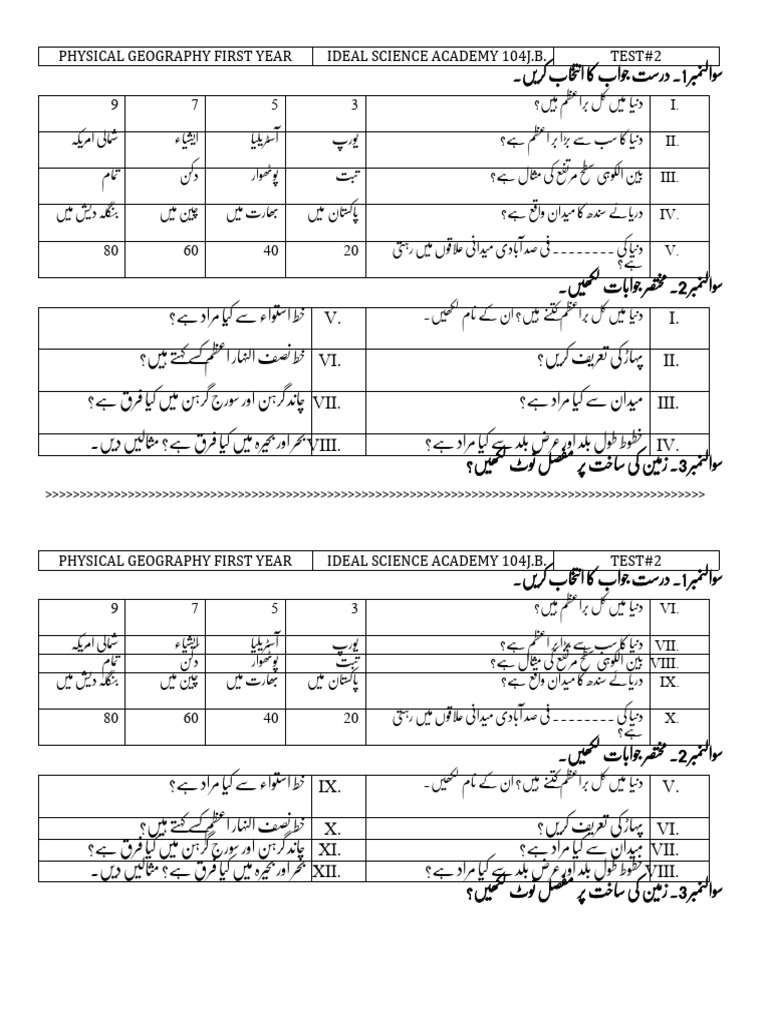 PHYSICAL GEOGRAPHY FIRST YEAR IDEAL SCIENCE ACADEMY 104J.B. TEST#2
سوالنمبر1۔ درست جواب کا انتخاب کریں۔
I. دنیا میں کل براعظم ہیں؟ 3 5 7 9
II. دنیا کا سب سے بڑا براعظم ہے؟ یورپ آسٹریلیا ایشیاء شمالی امریکہ
III. بین الکوہی سطح مرتفع کی مثال ہے؟ تبت پوٹھوار دکن تمام
IV. دریائے سندھ کا میدان واقع ہے؟ پاکستان میں بھارت میں چین میں بنگلہ دیش میں
V. دنیا کی -------- فی صدآبادی میدانی علاقوں میں رہتی 20 40 60 80
ہے؟
سوالنمبر2۔ مختصر جوابات لکھیں۔
I. دنیا میں کل براعظم کتنے ہیں؟ ان کے نام لکھیں۔ V. خط استواء سے کیا مراد ہے؟
II. پہاڑ کی تعریف کریں؟ VI. خط نصف النہار اعظم کسے کہتے ہیں؟
III. میدان سے کیا مراد ہے؟ VII. چاند گرہن اور سورج گرہن میں کیا فرق ہے؟
IV. خطوط طول بلد اور عرض بلد سے کیا مراد ہے؟ VIII. بحر اور بحیرہ میں کیا فرق ہے؟ مثالیں دیں۔
سوالنمبر3۔ زمین کی ساخت پر مفصل نوٹ لکھیں؟
>>>>>>>>>>>>>>>>>>>>>>>>>>>>>>>>>>>>>>>>>>>>>>>>>>>>>>>>>>>>>>>>>>>>>>>>>>>>>>>>>>>>>>>>>>>>>>>>
PHYSICAL GEOGRAPHY FIRST YEAR IDEAL SCIENCE ACADEMY 104J.B. TEST#2
سوالنمبر1۔ درست جواب کا انتخاب کریں۔
VI. دنیا میں کل براعظم ہیں؟ 3 5 7 9
VII. دنیا کا سب سے بڑا براعظم ہے؟ یورپ آسٹریلیا ایشیاء شمالی امریکہ
VIII. بین الکوہی سطح مرتفع کی مثال ہے؟ تبت پوٹھوار دکن تمام
IX. دریائے سندھ کا میدان واقع ہے؟ پاکستان میں بھارت میں چین میں بنگلہ دیش میں
X. دنیا کی -------- فی صدآبادی میدانی علاقوں میں رہتی 20 40 60 80
ہے؟
سوالنمبر2۔ مختصر جوابات لکھیں۔
V. دنیا میں کل براعظم کتنے ہیں؟ ان کے نام لکھیں۔ IX. خط استواء سے کیا مراد ہے؟
VI. پہاڑ کی تعریف کریں؟ X. خط نصف النہار اعظم کسے کہتے ہیں؟
VII. میدان سے کیا مراد ہے؟ XI. چاند گرہن اور سورج گرہن میں کیا فرق ہے؟
VIII. خطوط طول بلد اور عرض بلد سے کیا مراد ہے؟ XII. بحر اور بحیرہ میں کیا فرق ہے؟ مثالیں دیں۔
سوالنمبر3۔ زمین کی ساخت پر مفصل نوٹ لکھیں؟